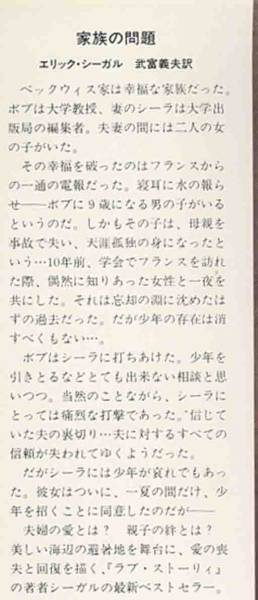 家族の問題
エリック・シーガル　武富義夫訳
ベックウィス家は幸福な家族だった。
ボブは大学教授、妻のシーラは大学出
版局の編集者。夫妻の間には二人の女
の子がいた。
その幸福を破ったのはフランスから
の一通の電報だった。寝耳に水の報ら
せ──ボブに９歳になる男の子がいる
というのだ。しかもその子は、母親を
事故で失い、天涯孤独の身になったと
いう…10年前、学会でフランスを訪れ
た際、偶然に知りあった女性と一夜を
共にした。それは忘却の淵に沈めたは
ずの過去だった。だが少年の存在は消
すべくもない…。
ボブはシーラに打ちあけた。少年を
引きとるなどとても出来ない相談と思
いつつ。当然のことながら、シーラに
とっては痛烈な打撃であった。信じて
いた夫の裏切り…夫に対するすべての
信頼が失われてゆくようだった。
だがシーラには少年が哀れでもあ
った。彼女はついに、一夏の間だけ、少
年を招くことに同意したのだが──
夫婦の愛とは？　親子の絆とは？
美しい海辺の避暑地を舞台に、愛の喪
失と回復を描く、『ラブ・ストーリィ』
の著者シーガルの最新ベストセラー。